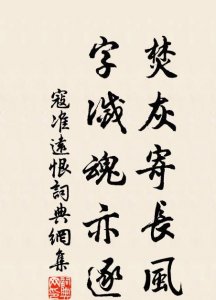 焚灰寄長風
字滅魂亦逐
寇准遠恨詞典網集